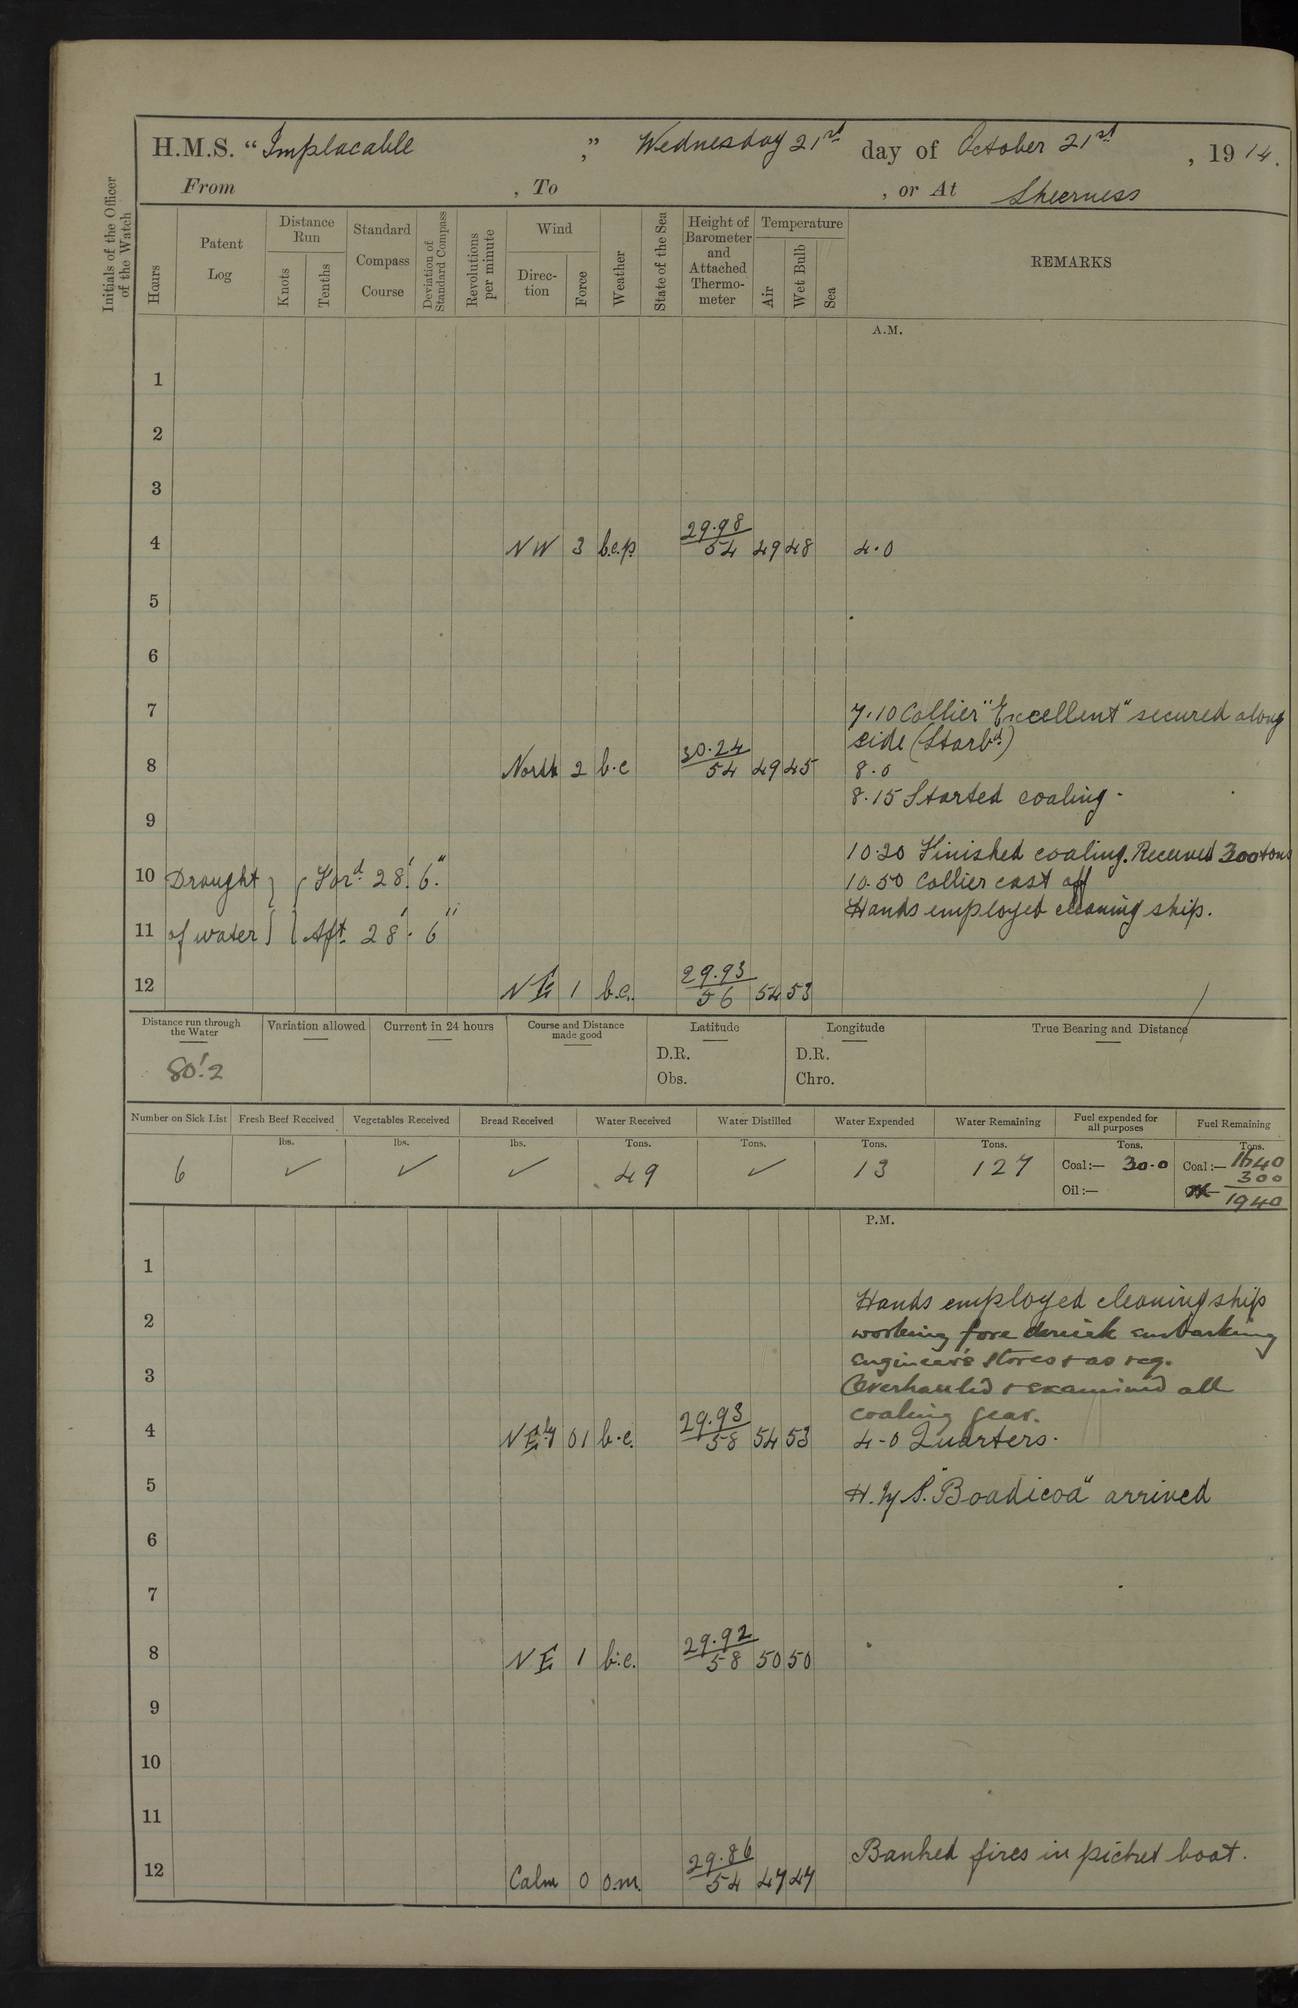 H.M.S. "Implacable ," Wednesday 21st day of October 21st , 1914.
From , To , or At Sheerness
Initials of the Officer of the Watch
Hours
Patent Log
Distance Run
Knots
Tenths
Standard Compass Course
Deviation of Standard Compass
Revolutions per minute
Wind
Direc-tion
Force
Weather
State of the Sea
Height of Barometer and Attached Thermo-meter
Temperature
Air
Wet Bulb
Sea
REMARKS
A.M.
1
2
3
4 NW 3 b.c.p. 29.98/54 49 48 4.0
5
6
7 7.10 Collier "Excellent" secured along
side (Starbd.)
8 North 2 b.c 30.24/54 49 45 8.0
8.15 Started coaling.
9
10.20 Finished coaling. Received 300 tons
10 Draught } { Ford. 28' 6" 10.50 Collier cast off
Hands employed cleaning ship.
11 of water } { Aft. 28' 6"
12 NE 1 b.c. 29.93/56 54 53
Distance run through the Water
80'.2
Variation allowed
Current in 24 hours
Course and Distance made good
Latitude
D.R.
Obs.
Longitude
D.R.
Chro.
True Bearing and Distance
Number on Sick List
6
Fresh Beef Received
lbs.
✓
Vegetables Received
lbs.
✓
Bread Received
lbs.
✓
Water Received
Tons.
49
Water Distilled
Tons.
✓
Water Expended
Tons.
13
Water Remaining
Tons.
127
Fuel expended for all purposes
Tons.
Coal:— 30.0
Oil:—
Fuel Remaining
Tons.
Coal:— 1640
300
1940
P.M.
1
Hands employed cleaning ship
2 working fore derrick embarking
engineer's stores & as req.
3 Overhauled & examined all
coaling gear.
4 NE'ly 01 b.c. 29.93/58 54 53 4-0 Quarters.
5 H.M.S. "Boadicea" arrived
6
7
8 NE 1 b.c. 29.92/58 50 50
9
10
11
Banked fires in picket boat.
12 Calm 0 o.m. 29.86/54 47 47